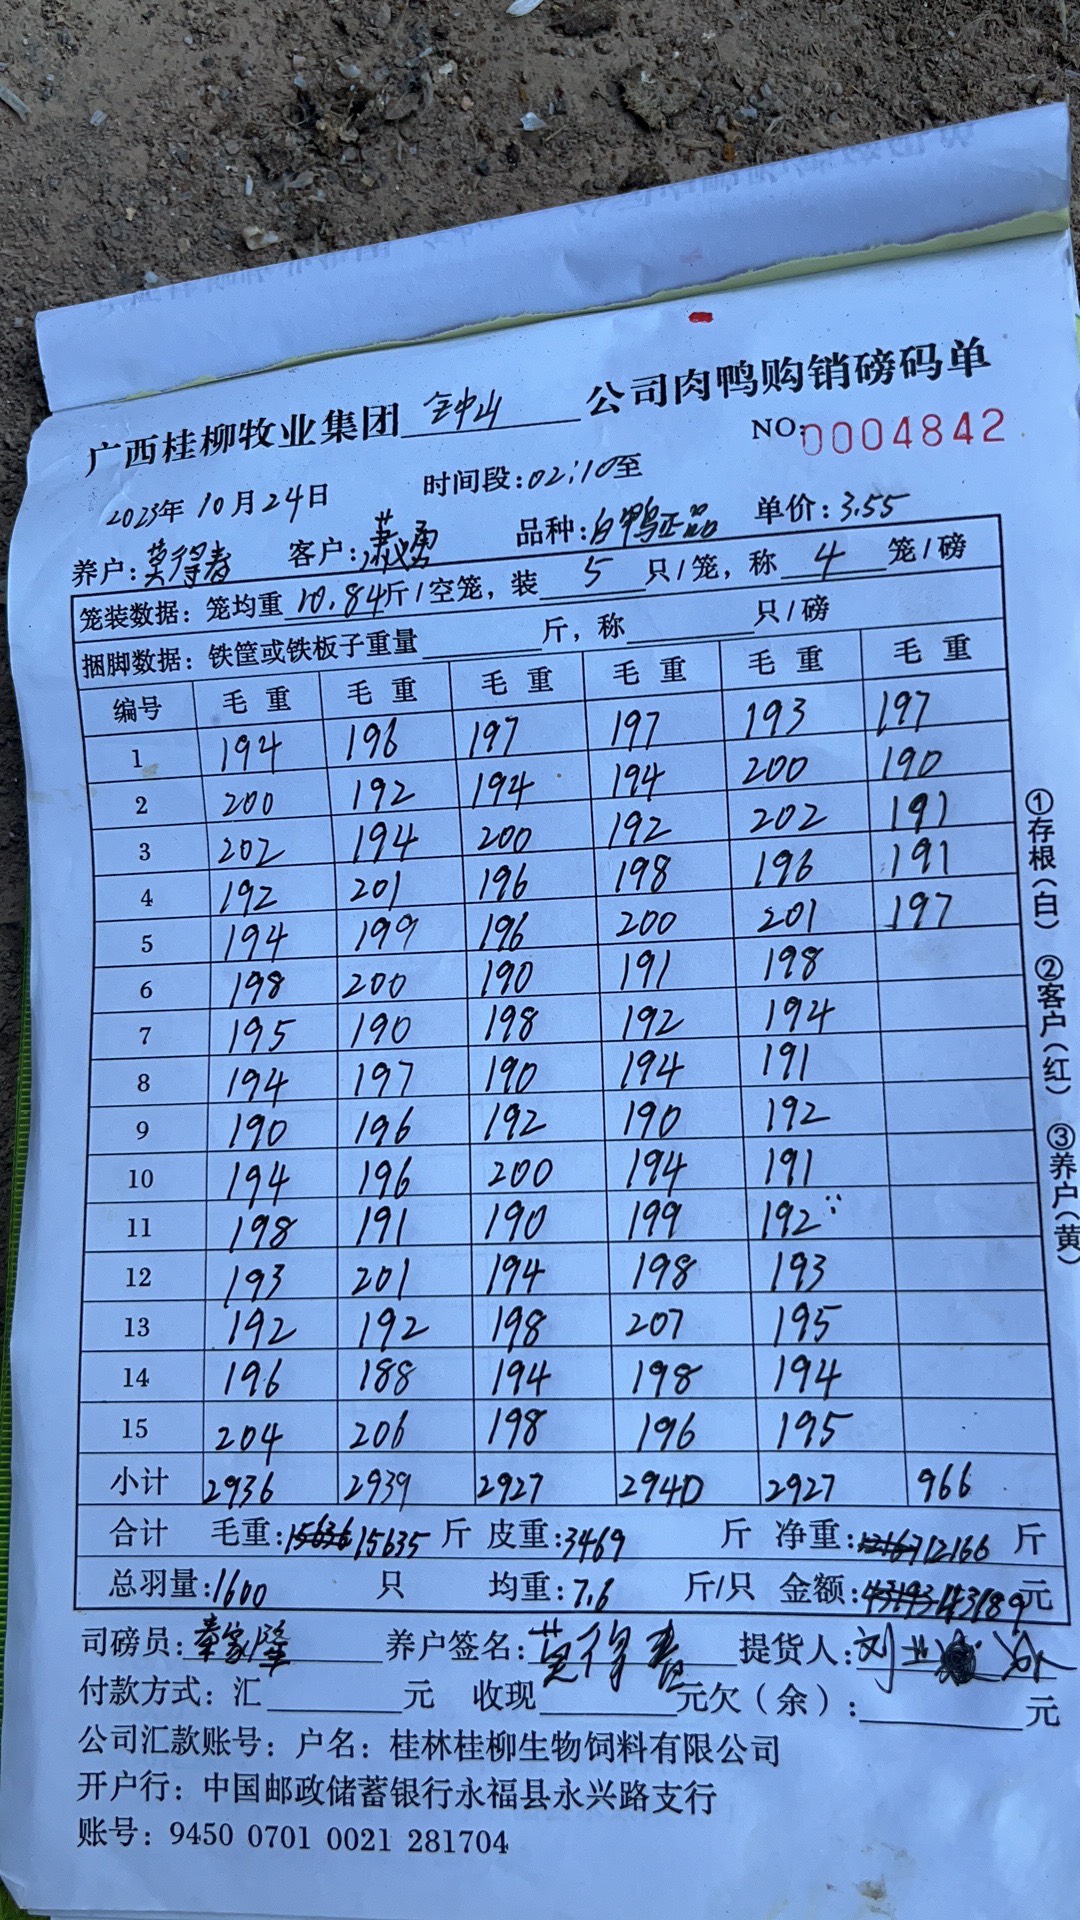 广西桂柳牧业集团 钟山 公司肉鸭购销磅码单
NO:0004842
2023年10月24日 时间段:02:10至
养户:莫得春 客户:萧义勇 品种:白鸭正品 单价:3.55
笼装数据:笼均重10.84斤/空笼,装5只/笼,称4笼/磅
捆脚数据:铁筐或铁板子重量 斤,称 只/磅
编号 毛重 毛重 毛重 毛重 毛重 毛重
1 194 196 197 197 193 197
2 200 192 194 194 200 190
3 202 194 200 192 202 191
4 192 201 196 198 196 191
5 194 199 196 200 201 197
6 198 200 190 191 198
7 195 190 198 192 194
8 194 197 190 194 191
9 190 196 192 190 192
10 194 196 200 194 191
11 198 191 190 199 192
12 193 201 194 198 193
13 192 192 198 207 195
14 196 188 194 198 194
15 204 206 198 196 195
小计 2936 2939 2927 2940 2927 966
合计 毛重:15636 15635斤 皮重:3469 斤 净重:12167 12166斤
总羽量:1600 只 均重:7.6 斤/只 金额:43193 43189元
司磅员:秦家隆 养户签名:莫得春 提货人:刘业
付款方式:汇 元 收现 元欠(余): 元
公司汇款账号:户名:桂林桂柳生物饲料有限公司
开户行:中国邮政储蓄银行永福县永兴路支行
账号:9450 0701 0021 281704
①存根(白) ②客户(红) ③养户(黄)